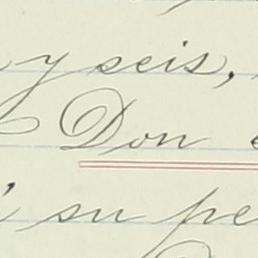 y seis,
Don
su pe